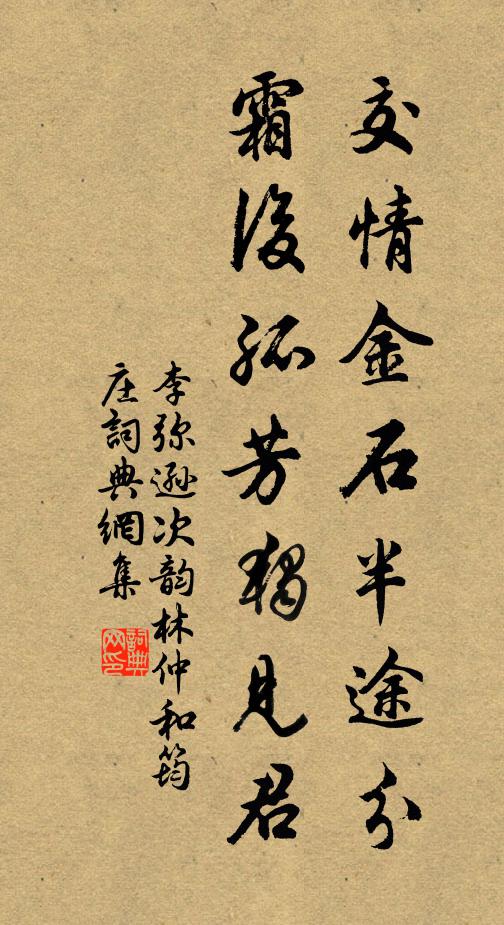 交情金石半途分
霜後孤芳獨見君
李弥遜次韵林仲和筠
庄詞典網集
詞典网印